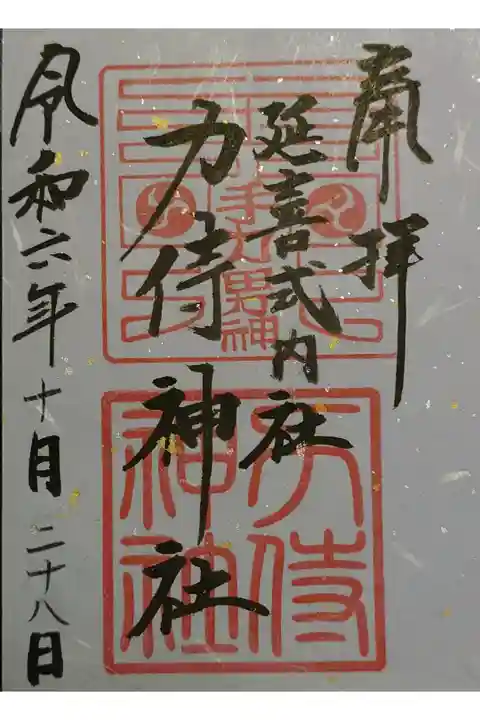 奉拝
延喜式内社
力侍神社
令和六年十月二十八日
力侍神社